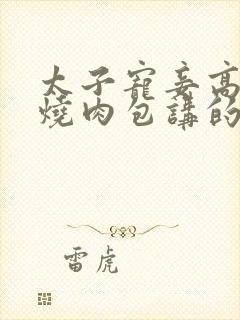 太子寵妾高
燒肉包講的
雷虎